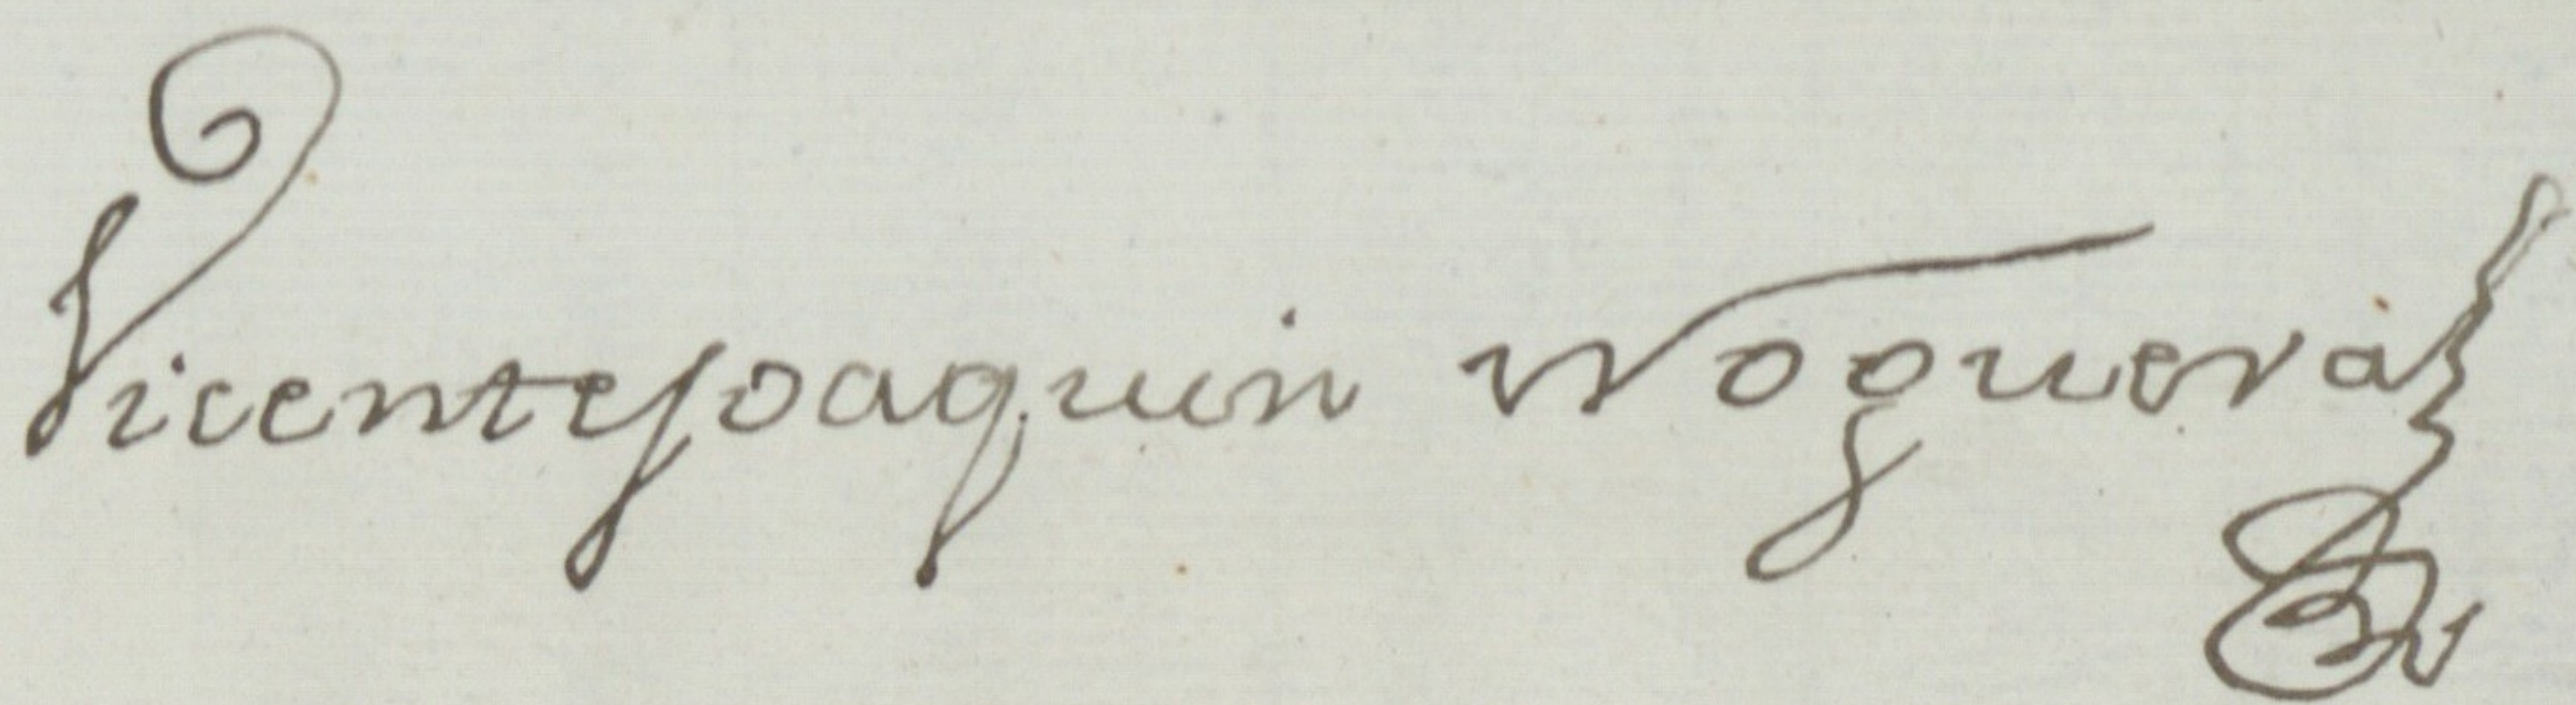 Vicente Joaquin Noguera